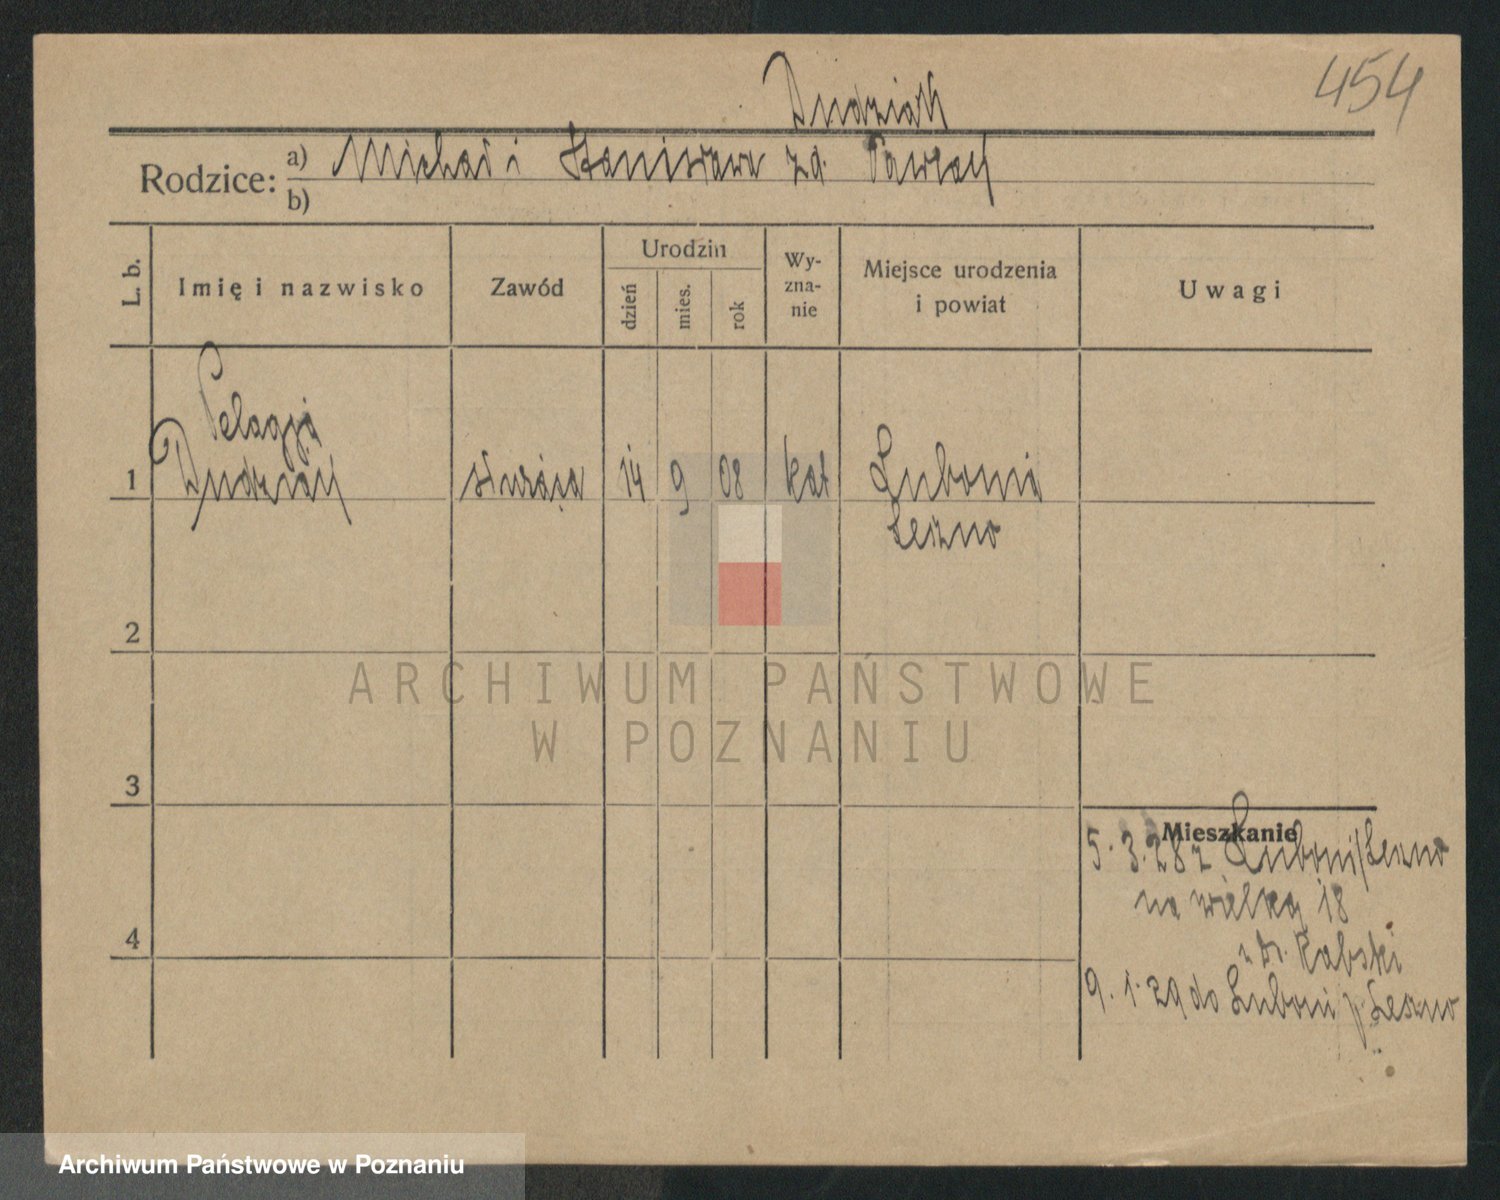 454
Dudziak
Rodzice: a) Michał i Stanisława zd. Pawlak
b)
L. b.
Imię i nazwisko
Zawód
Urodzin
dzień
mies.
rok
Wy-
zna-
nie
Miejsce urodzenia
i powiat
Uwagi
Pelagja
1 Dudziak służąca 14 9 08 kat Lubonia
Leszno
2
3
4
Mieszkanie
5. 3. 28 z Luboni/Leszno
na wielką 18
u dr. Rabski
9. 1. 29 do Luboni p. Leszno
ARCHIWUM PAŃSTWOWE
W POZNANIU
Archiwum Państwowe w Poznaniu